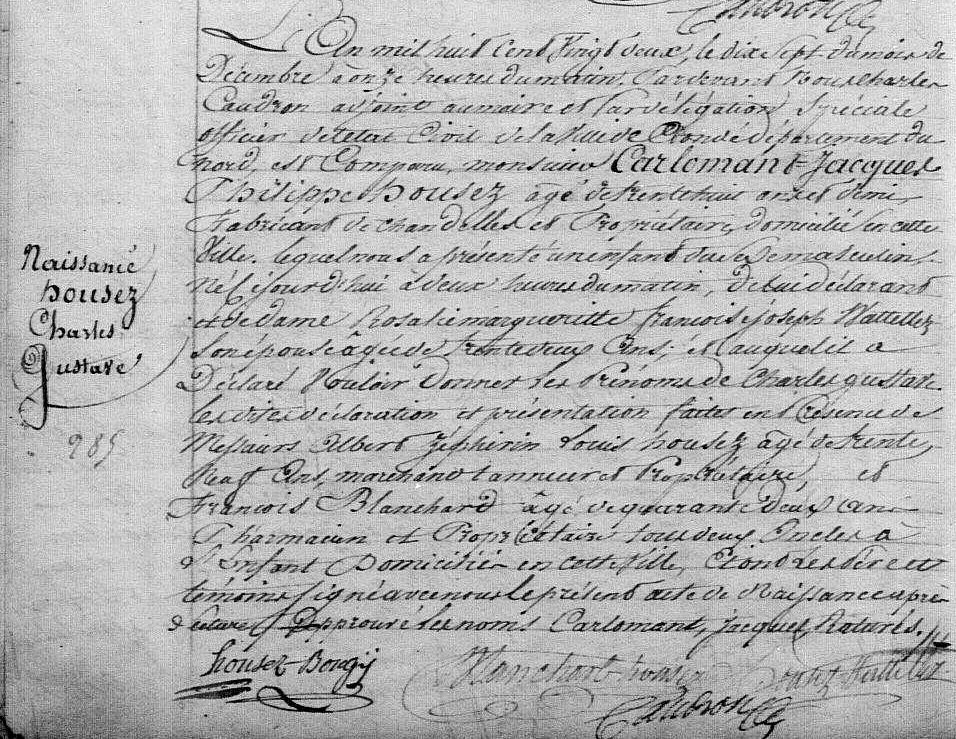 Caudron
L'An mil huit cent Vingt deux, le dix Sept du mois de
Décembre à onze heures du matin, Pardevant Nous Charles
Caudron adjoint au maire et Par délégation Spéciale
officier de l'état Civil de la Ville de Condé département du
Nord, est Comparu, monsieur Carlomant-Jacques
Philippe housez agé de trente huit ans et demi
Fabricant de chandelles et Propriétaire, domicilié en cette
Ville. lequel nous a présenté un enfant du Sexe masculin,
Né Cejourd'hui à deux heures du matin, De lui déclarant
et de dame Rosalie margueritte françoise joseph Wattellez
Son épouse agée de trente deux Ans; et auquel il a
Déclaré Vouloir donner les Prénoms de Charles gustave
lesdites déclaration et présentation faites en Présence de
Messieurs Albert Zéphirin Louis housez agé de trente
Neuf Ans, marchand tanneur et Propriétaire, et
François Blanchard âgé de quarante Deux ans
Pharmacien et Propriétaire tous deux Oncles a
l'Enfant Domiciliés en cette Ville, Et ont les Père et
témoins Signé avec nous le présent acte de Naissance après
Lecture. Approuvé les noms Carlomant, Jacques, Raturés.
Naissance
housez
Charles
Gustave
285
housez-Bougy Blanchart-housez housez Wattellez
Caudron